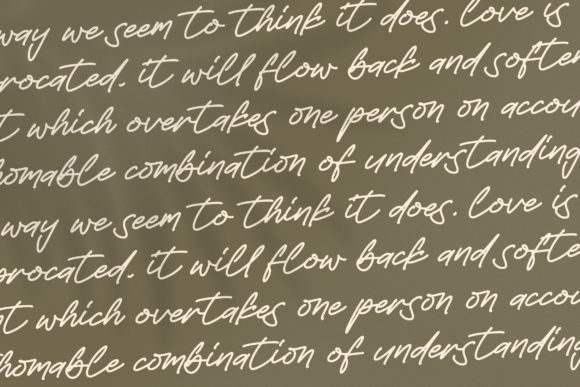 way we seem to think it does. love is
procated. it will flow back and soften
t which overtakes one person on accou
homable combination of understanding
way we seem to think it does. love is
procated. it will flow back and softe
ot which overtakes one person on accou
homable combination of understanding